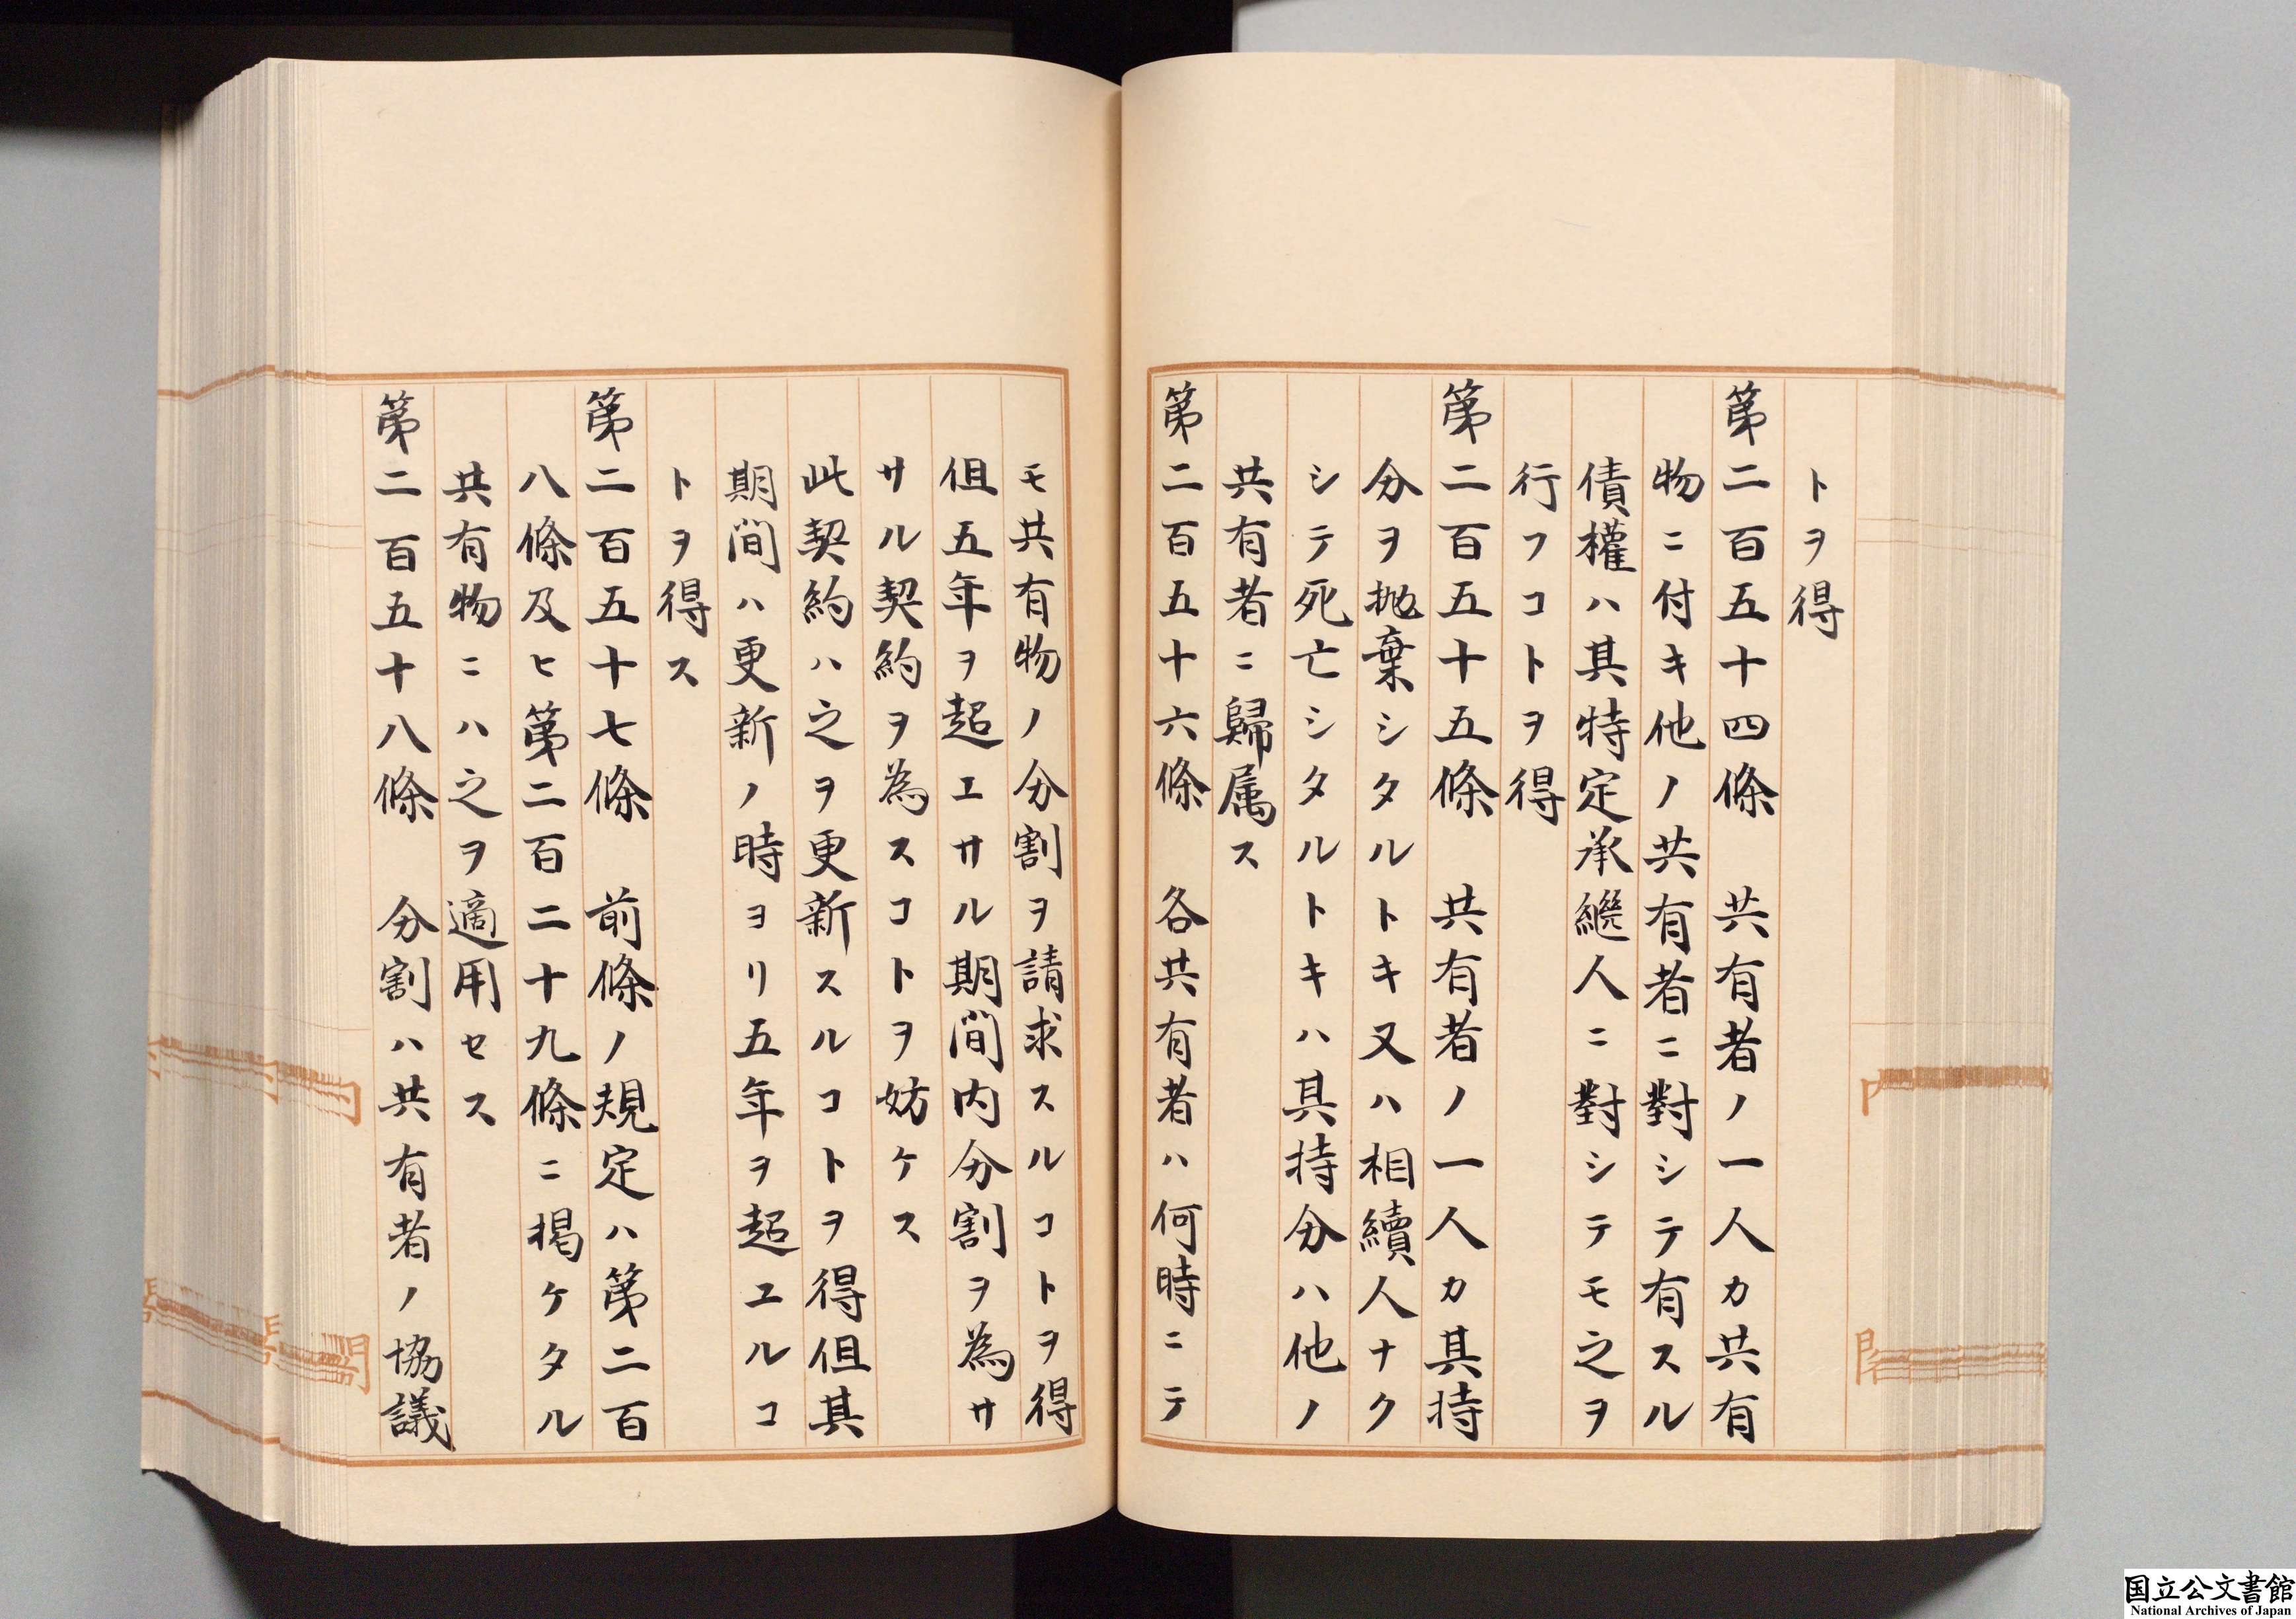 トヲ得
第二百五十四條　共有者ノ一人カ共有
物ニ付キ他ノ共有者ニ對シテ有スル
債權ハ其特定承繼人ニ對シテモ之ヲ
行フコトヲ得
第二百五十五條　共有者ノ一人カ其持
分ヲ抛棄シタルトキ又ハ相續人ナク
シテ死亡シタルトキハ其持分ハ他ノ
共有者ニ歸属ス
第二百五十六條　各共有者ハ何時ニテ
モ共有物ノ分割ヲ請求スルコトヲ得
但五年ヲ超エサル期間内分割ヲ為サ
サル契約ヲ為スコトヲ妨ケス
此契約ハ之ヲ更新スルコトヲ得但其
期間ハ更新ノ時ヨリ五年ヲ超エルコ
トヲ得ス
第二百五十七條　前條ノ規定ハ第二百
八條及ヒ第二百二十九條ニ掲ケタル
共有物ニハ之ヲ適用セス
第二百五十八條　分割ハ共有者ノ協議
国立公文書館
National Archives of Japan